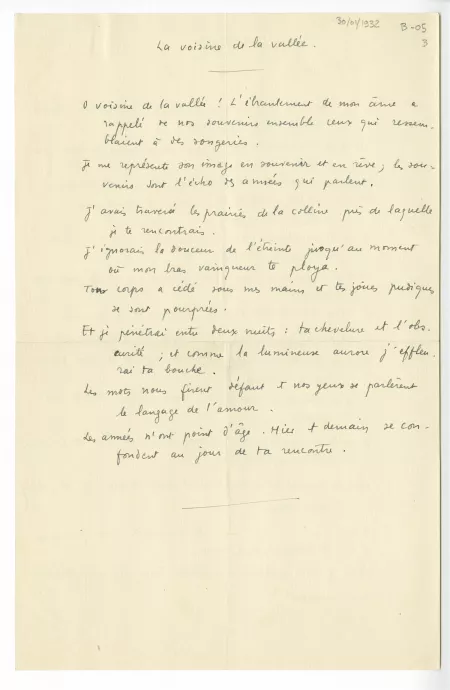 30/01/1932
B-05
3
La voisine de la vallée.
O voisine de la vallée ! L'ébranlement de mon âme a
rappelé de nos souvenirs ensemble ceux qui ressem-
blaient à des songeries.
Je me représente son image en souvenir et en rêve ; les sou-
venirs sont l'écho des années qui parlent.
J'avais traversé les prairies de la colline près de laquelle
je te rencontrais.
J'ignorais la douceur de l'étreinte jusqu'au moment
où mon bras vainqueur te ploya.
Ton corps a cédé sous mes mains et tes joues pudiques
se sont pourprées.
Et je pénétrai entre deux nuits : ta chevelure et l'obs-
curité ; et comme la lumineuse aurore j'effleu-
rai ta bouche.
Les mots nous firent défaut et nos yeux se parlèrent
le langage de l'amour.
Les années n'ont point d'âge. Hier et demain se con-
fondent au jour de ta rencontre.